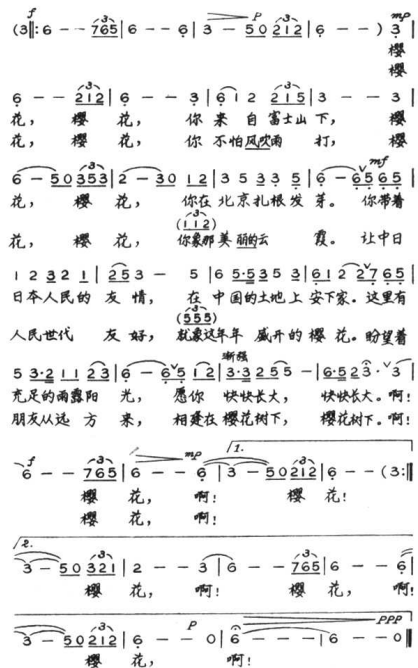 f p mp
(3‖: 6 - - 765 | 6 - - 6 | 3 - 50 212 | 6 - - ) 3 |
樱
樱
6 - - 212 | 6 - - 3 | 6 1 2 215 | 3 - - 3 |
花， 樱 花， 你 来 自 富士山 下， 樱
花， 樱 花， 你 不怕 风吹雨 打， 樱
mf
6 - 50 353 | 2 - 30 12 | 35 33 5 | 6 - 65 65 |
花， 樱 花， 你在 北京扎根发 芽。 你带着
(112)
花， 樱 花， 你象那美丽的云 霞。 让中日
1 2 32 1 | 253 - 5 | 6 5·5 35 3 | 61 2 27 65 |
日本人民的 友 情， 在 中国的土地上 安下家。这里有
(555)
人民世代 友 好， 就象这年年 盛开的樱 花。盼望着
渐强
5 3·2 11 2 | 6 - 65 12 | 3·3 2 55 - | 6·5 23 · 3 |
充足的雨露阳 光， 愿你 快快长大， 快快长大。啊！
朋友从远 方 来， 相逢在 樱花树下， 樱花树下。啊！
f mp 1.
6 - - 765 | 6 - - 6 | 3 - 50 212 | 6 - - (3 :‖
樱 花， 啊！ 樱 花！
樱 花， 啊！
2.
3 - 50 321 | 2 - - 3 | 6 - - 765 | 6 - - 6 |
樱 花， 啊！ 樱 花， 啊！
p ppp
3 - 50 212 | 6 - - 0 | 6 - - - | 6 - - 0 ‖
樱 花， 啊！